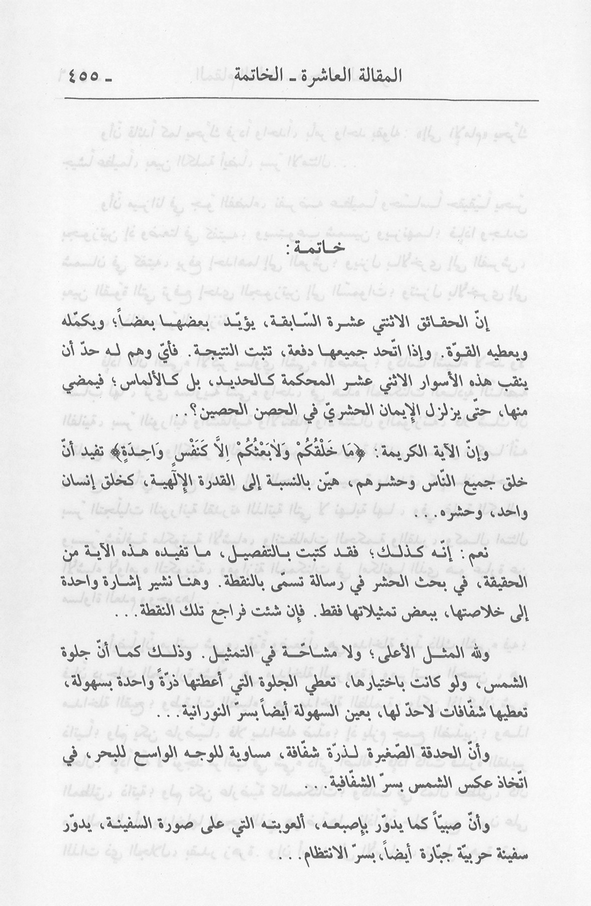 المقالة العاشرة ـ الخاتمة
ـ ٤٥٥
خاتمة:
إنّ الحقائق الاثنتي عشرة السّابقة، يؤيّد بعضها بعضاً؛ ويكمّله
ويعطيه القوّة. وإذا اتّحد جميعها دفعة، تثبت النتيجة. فأيّ وهم له حدّ أن
ينقب هذه الأسوار الاثني عشر المحكمة كالحديد، بل كالألماس؛ فيمضي
منها، حتى يزلزل الإيمان الحشريّ في الحصن الحصين؟..
وإنّ الآية الكريمة: ﴿مَا خَلْقُكُمْ وَلَابَعْثُكُمْ اِلَّا كَنَفْسٍ وَاحِدَةٍ﴾ تفيد أنّ
خلق جميع النّاس وحشرهم، هيّن بالنسبة إلى القدرة الإلٰهية، كخلق إنسان
واحد، وحشره...
نعم: إنّه كذلك؛ فقد كتبت بالتفصيل، ما تفيده هذه الآية من
الحقيقة، في بحث الحشر في رسالة تسمّى بالنقطة. وهنا نشير إشارة واحدة
إلى خلاصتها، ببعض تمثيلاتها فقط. فإن شئت فراجع تلك النقطة...
ولله المثل الأعلى؛ ولا مشاحّة في التمثيل. وذلك كما أنّ جلوة
الشمس، ولو كانت باختيارها، تعطي الجلوة التي أعطتها ذرّةً واحدة بسهولة،
تعطيها شفّافات لاحدّ لها، بعين السهولة أيضاً بسرّ النورانية...
وأنّ الحدقة الصّغيرة لذرّة شفّافة، مساوية للوجه الواسع للبحر، في
اتّخاذ عكس الشمس بسرّ الشفّافية...
وأنّ صبيّاً كما يدوّر بإصبعه، ألعوبته التي على صورة السفينة، يدوّر
سفينة حربيّة جبّارة أيضاً، بسرّ الانتظام...